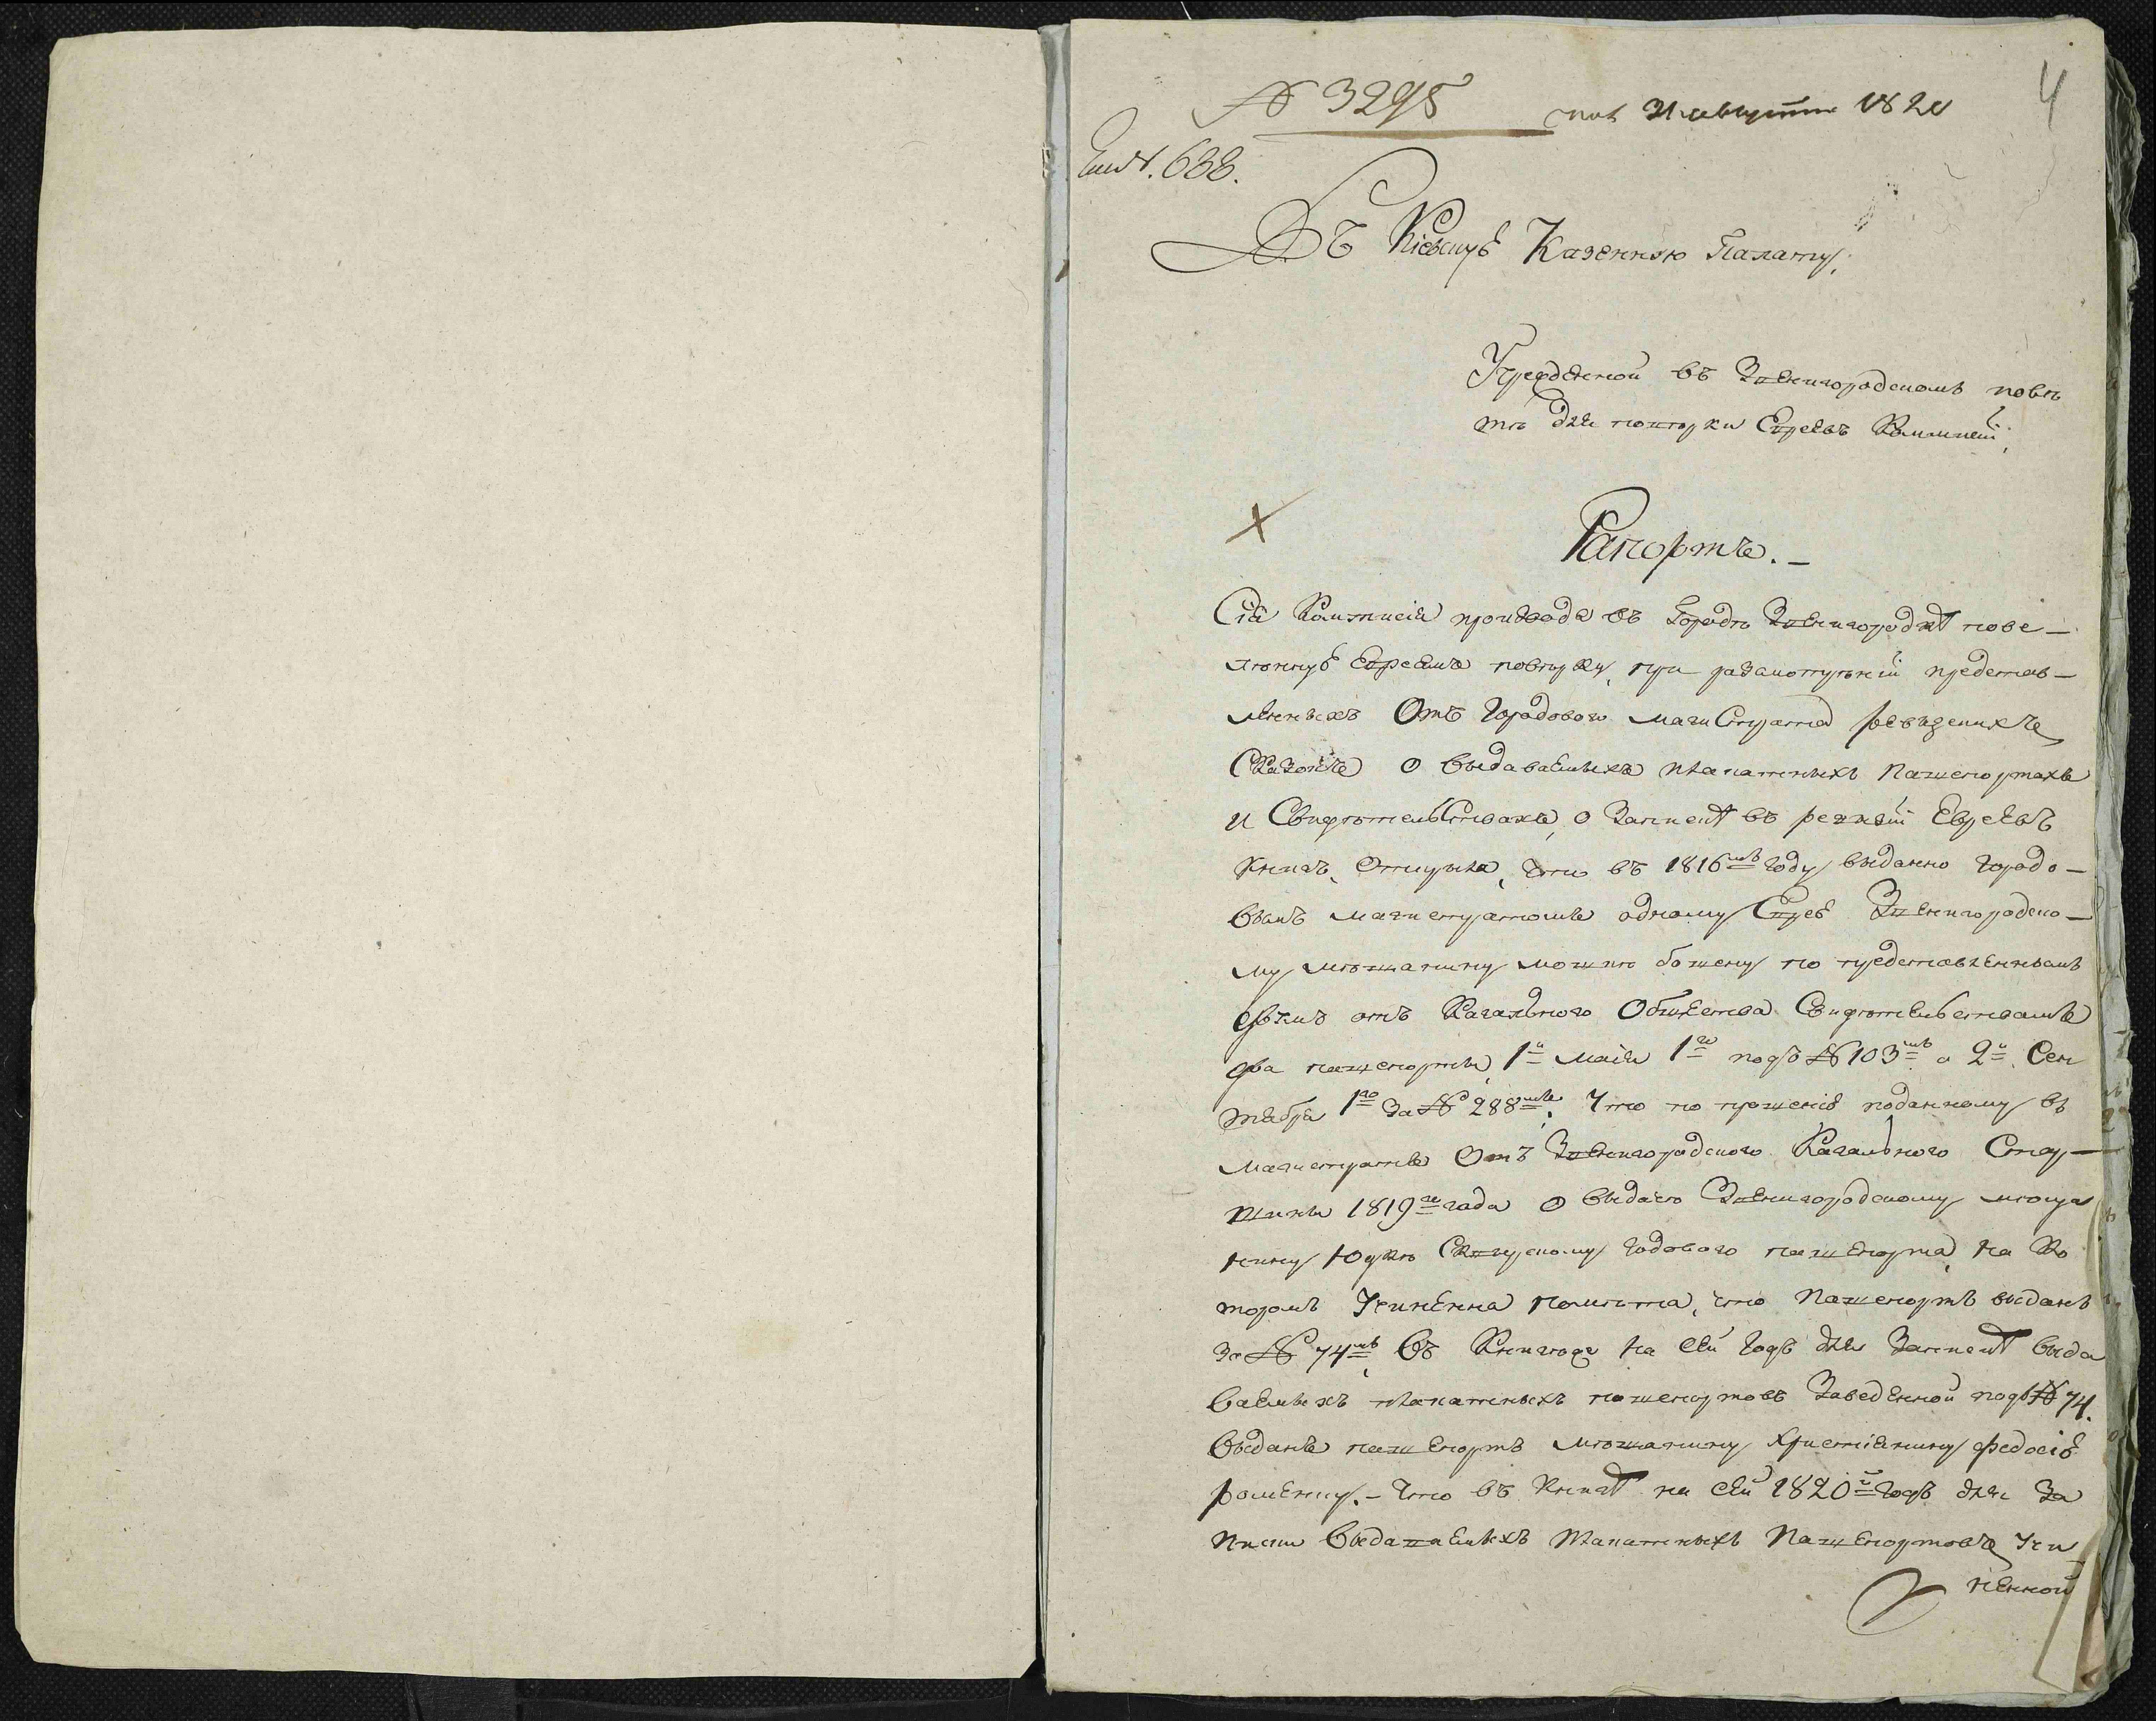 № 3295
4
31 августа 1820
638.
Въ Кіевскую Казенною Палату,
Учрежденной въ Звенигородскомъ повѣ
тѣ для повѣрки Евреевъ Коммисіи,
Рапортъ. –
Сія Коммисія производя въ городѣ Звенигородкѣ пове–
лѣнную Евреямъ повѣрку, при разсмотрѣніи представ–
ленныхъ Отъ городового магистрата ревизскихъ
Сказокъ о выдаваемыхъ плакатныхъ пашпортахъ
и Свидѣтельствахъ, о Запискѣ въ ревизіи Евреевъ
книгъ, открыла, что въ 1816мъ году выданно городо–
вымъ магистратомъ одному Еврею Звенигородско–
му мѣщанину по представленнымъ
двумъ отъ Кагального Общества Свидѣтельствамъ
два пашпорты, 1й маія 1го подъ № 103мъ а 2й Сен
тября 1го за № 288мъ; Что по прошенію поданному въ
магистратъ Отъ Звенигородского Кагального Стар–
шины 1819го года о выдачѣ Звенигородскому мѣща
нину Юдкѣ Сквирскому годового пашпорта, на Ко
торомъ Учиненна помѣта, что пашпортъ выданъ
за № 74мъ, Въ Книгѣ на сей годъ для Записки выда
ваемыхъ плакатныхъ пашпортовъ Заведенной подъ № 74.
выданъ пашпортъ мѣщанину христіянину федосію
роменку. – Что въ книгѣ на сей 1820й годъ для За
писки выдаваемыхъ плакатныхъ пашпортовъ Учи
ненной